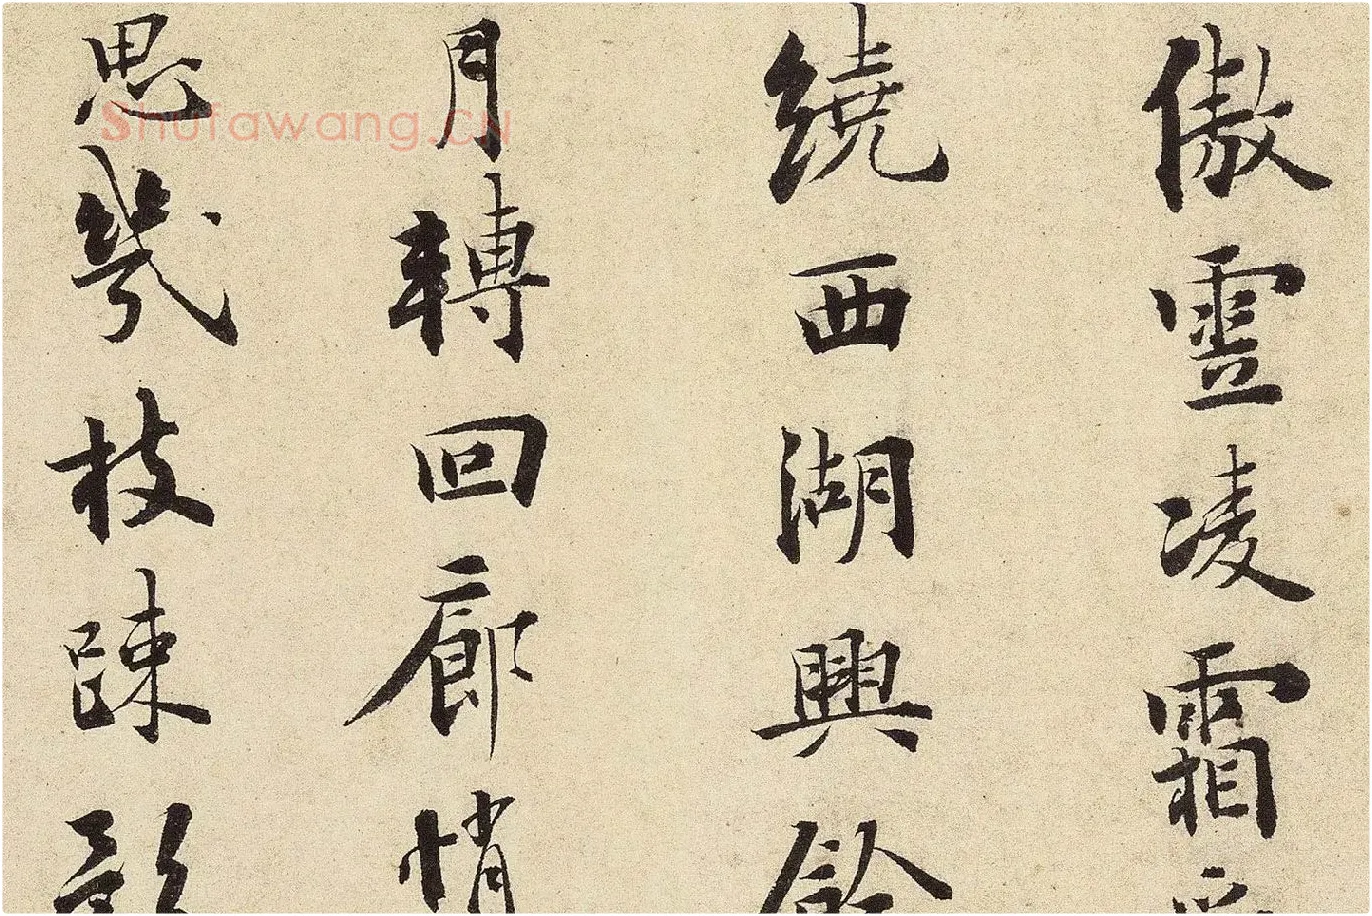 傲雪凌霜
繞西湖興餘
月轉回廊悄
思幾枝疎影
Shufawang.CN